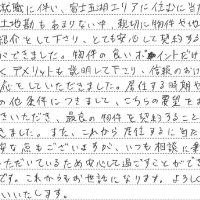 就職に伴い、富士五湖エリアに住むに当た
土地勘もあまりない中、親切に物件や地
紹介をして下さり、とても安心して契約する
ができました。物件の良いポイントだけ
くデメリットも説明して下さり、信頼のおけ
応をしていただきました。居住する時期や
の他条件につきまして、こちらの要望をお
きいただき、最良の物件を契約すること
きました。また、これから居住するに当た
安な点もございますが、いつも相談に乗
ただいているため安心して過ごすことがで
です。これからもお世話になります。よろし
いいたします。